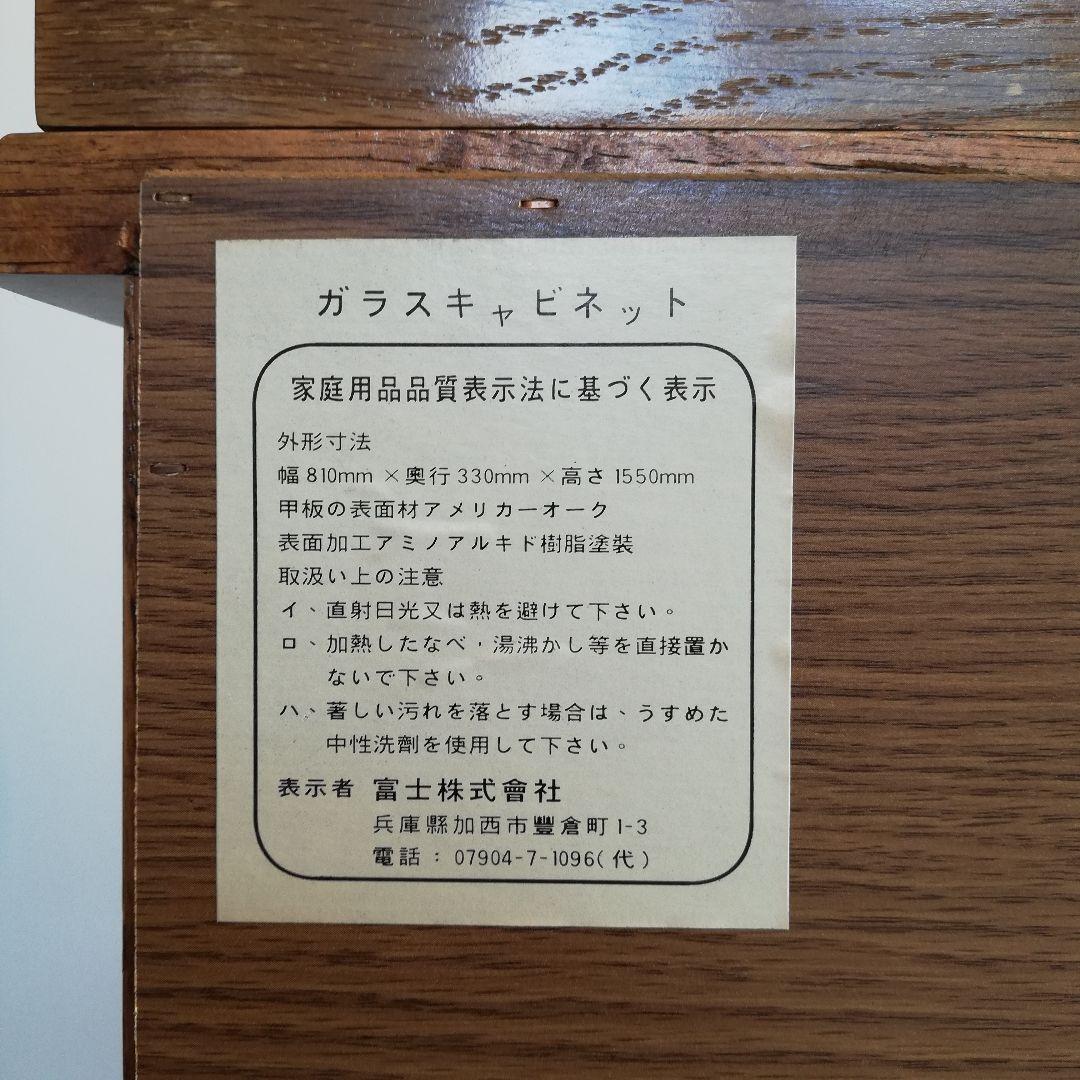 ガラスキャビネット
家庭用品品質表示法に基づく表示
外形寸法
幅810mm×奧行330mm×高さ1550mm
甲板の表面材アメリカーオーク
表面加工アミノアルキド樹脂塗裝
取扱い上の注意
イ、直射日光又は熱を避けて下さい。
ロ、加熱したなべ，湯沸かし等を直接置か
ないで下さい。
ハ、著しい汚れを落とす場合は、うすめた
中性洗劑を使用して下さい。
表示者 富士株式會社
兵庫縣加西市豐倉町1-3
電話：07904-7-1096(代)